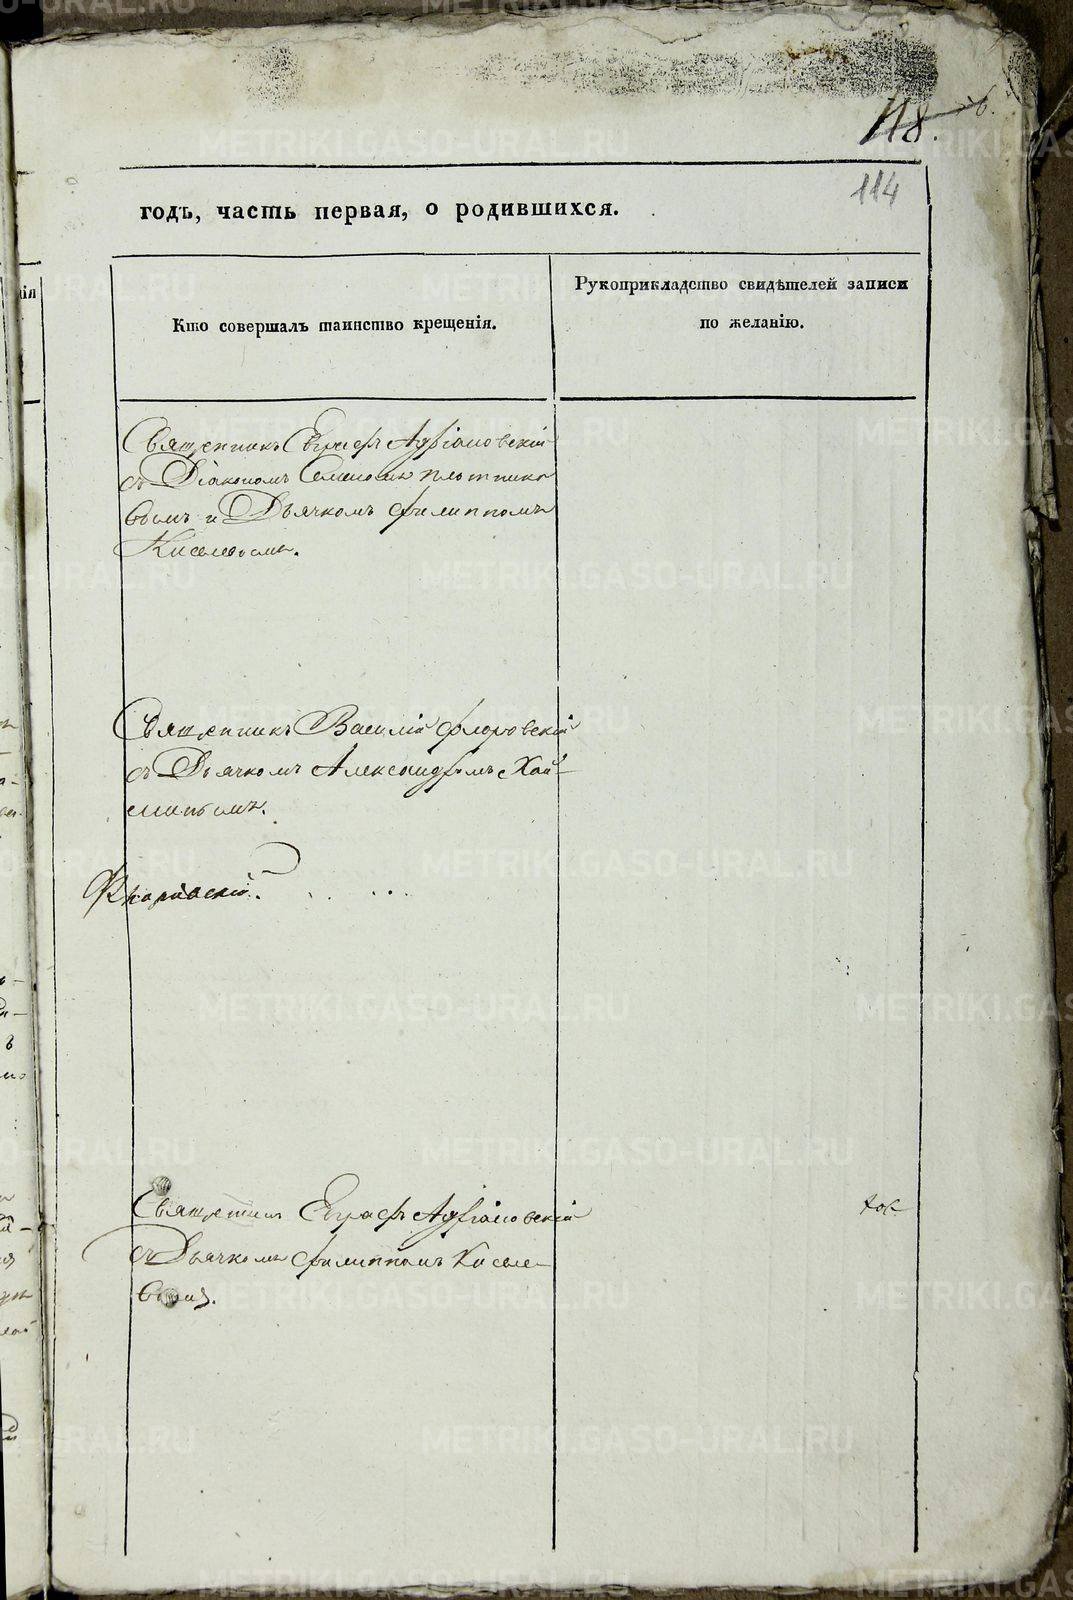 118.
114
годъ, часть первая, о родившихся.
Кто совершалъ таинство крещенія.
Рукоприкладство свидѣтелей записи
по желанію.
Священникъ Евграфъ Адріановскій
съ Діакономъ Семеномъ Плотнико
вымъ и Дьячкомъ Филиппомъ
Киселевымъ.
Священникъ Василій Флоровскій
съ Дьячкомъ Александромъ
Священникъ Евграфъ Адріановскій
съ Дьячкомъ Филиппомъ Киселе-
вымъ.
METRIKI.GASO-URAL.RU